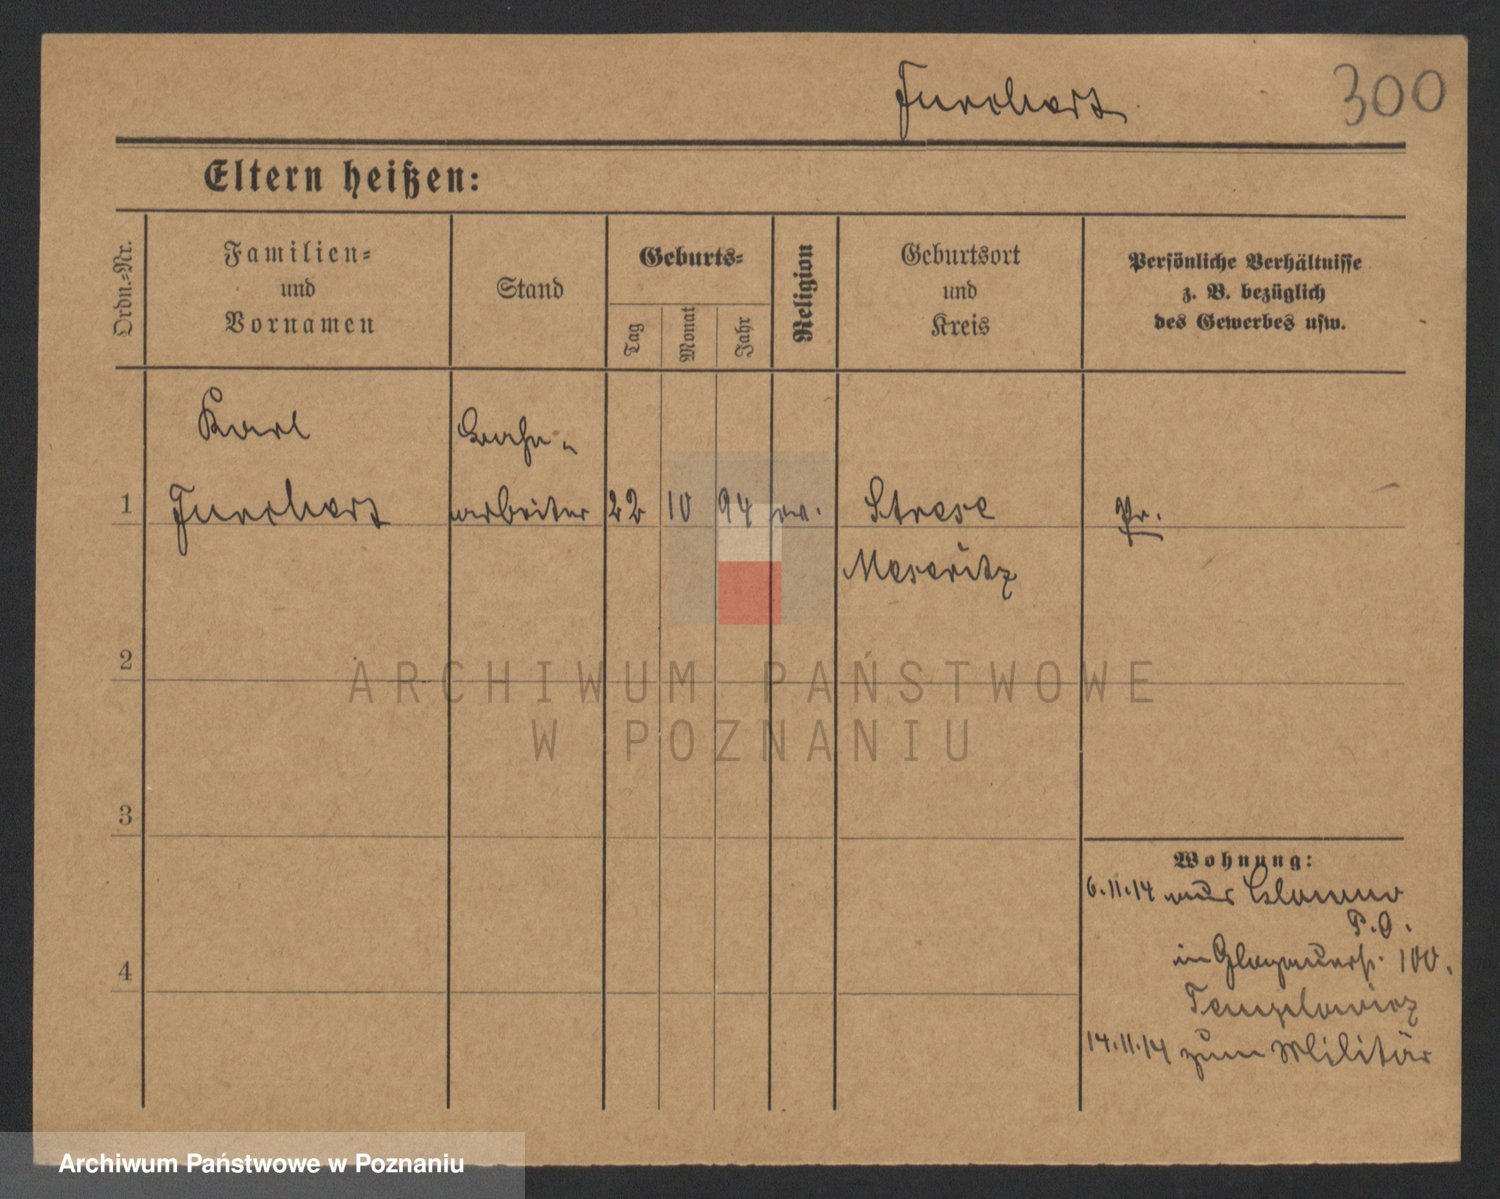 Furchert
300
Eltern heißen:
Ordn.-Nr.
Familien- und Vornamen
Stand
Geburts-
Tag
Monat
Jahr
Religion
Geburtsort und Kreis
Persönliche Verhältnisse z. B. bezüglich des Gewerbes usw.
Karl
Bahn-
1 Furchert arbeiter 22 10 94 ev. Strese Pr.
Meseritz
2
3
4
Wohnung:
6.11.14 aus
P.O.
in Glogauerstr. 100.
14.11.14 zum Militär
ARCHIWUM PAŃSTWOWE
W POZNANIU
Archiwum Państwowe w Poznaniu